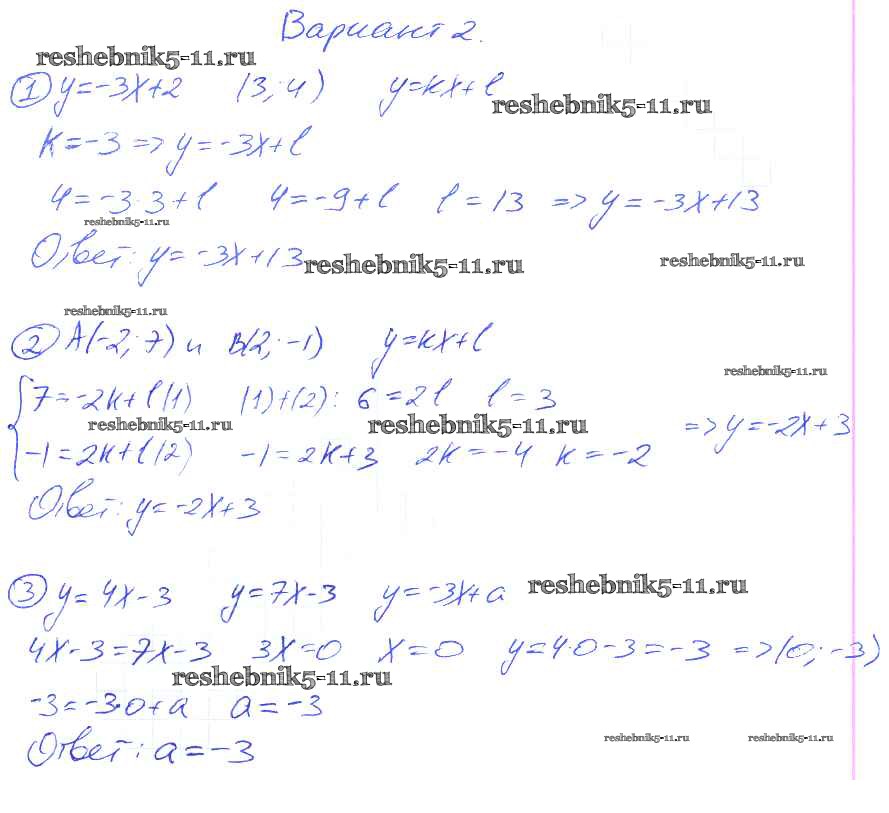 Вариант 2.
reshebnik5-11.ru
① y=-3x+2 (3; 4) y=kx+l
reshebnik5-11.ru
k=-3 => y=-3x+l
4=-3·3+l 4=-9+l l=13 => y=-3x+13
reshebnik5-11.ru
Ответ: y=-3x+13
reshebnik5-11.ru reshebnik5-11.ru
reshebnik5-11.ru
② A(-2; 7) и B(2; -1) y=kx+l
reshebnik5-11.ru
7=-2k+l (1) (1)+(2): 6=2l l=3
reshebnik5-11.ru reshebnik5-11.ru
=> y=-2x+3
-1=2k+l (2) -1=2k+3 2k=-4 k=-2
Ответ: y=-2x+3
③ y=4x-3 y=7x-3 y=-3x+a
reshebnik5-11.ru
4x-3=7x-3 3x=0 x=0 y=4·0-3=-3 => (0; -3)
reshebnik5-11.ru
-3=-3·0+a a=-3
Ответ: a=-3
reshebnik5-11.ru reshebnik5-11.ru